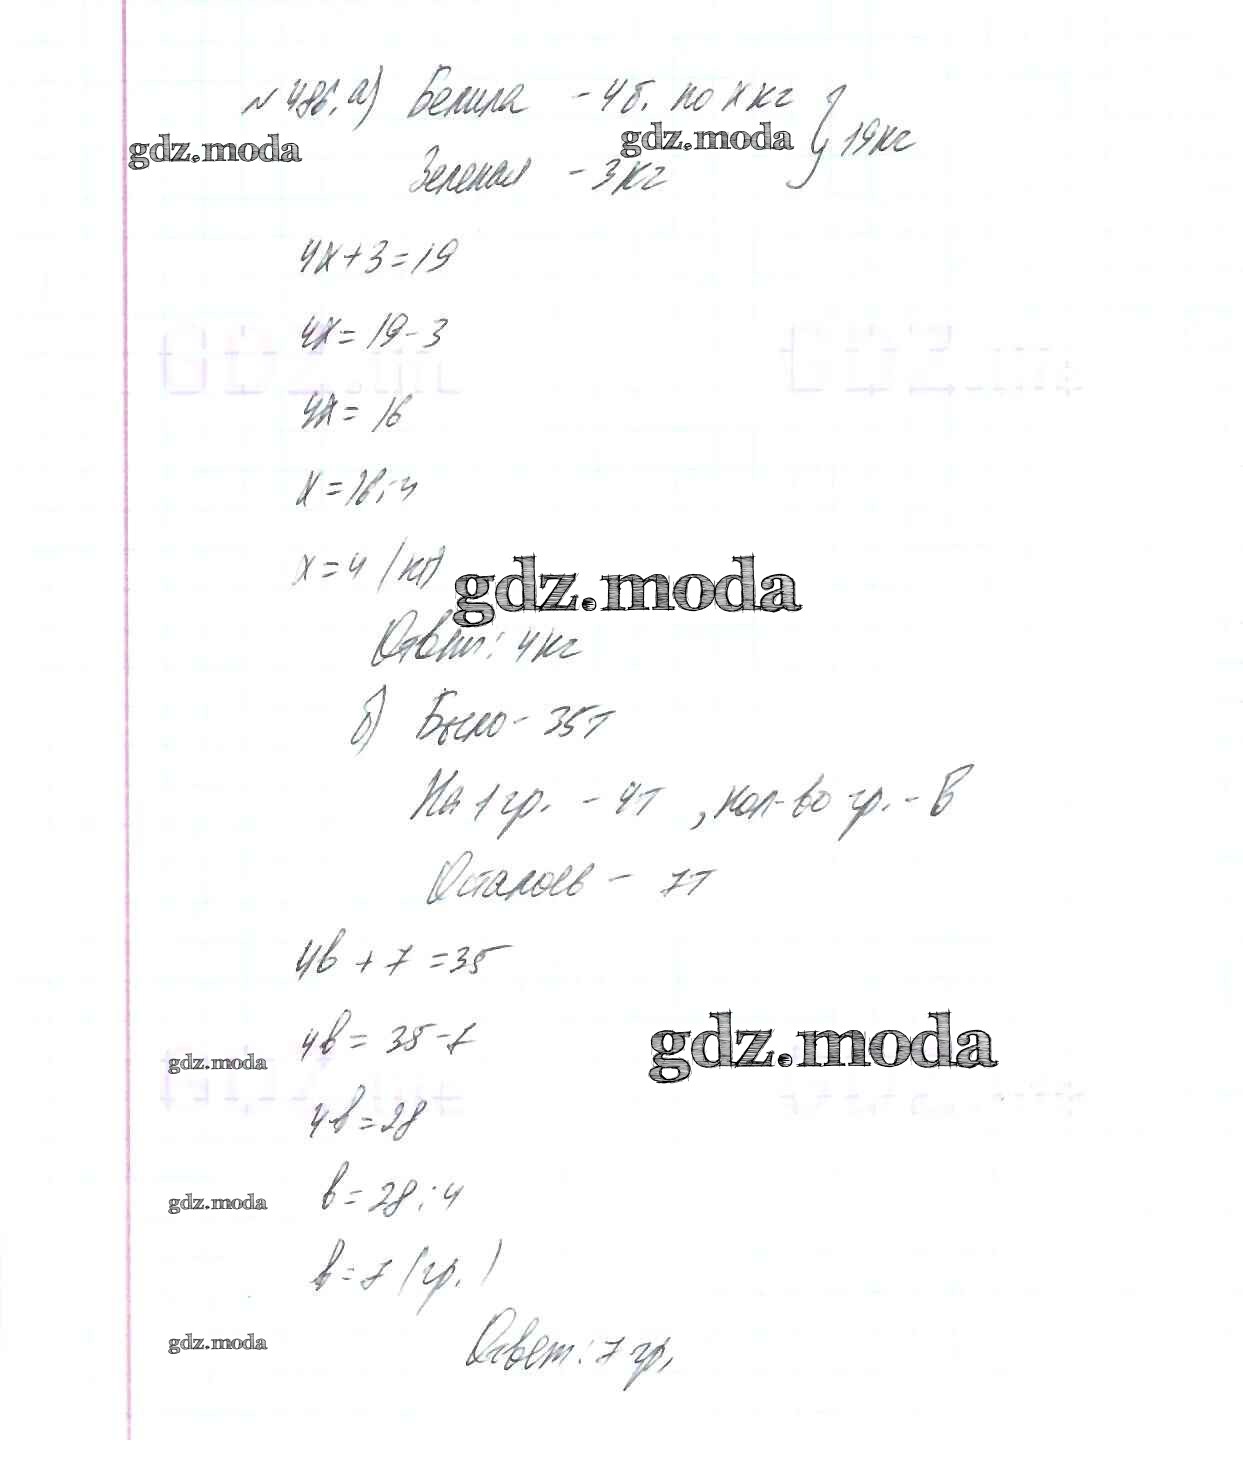 № 486. а) Белила – 4б. по x кг } 19 кг
gdz.moda gdz.moda
Зеленая – 3 кг
4x + 3 = 19
4x = 19 – 3
4x = 16
x = 16 : 4
x = 4 (кг)
gdz.moda
Ответ: 4 кг
б) Было – 35т
На 1 гр. – 4т , кол-во гр. – в
Осталось – 7т
4в + 7 = 35
4в = 35 – 7
gdz.moda gdz.moda
4в = 28
в = 28 : 4
gdz.moda
в = 7 (гр.)
Ответ: 7 гр.
gdz.moda